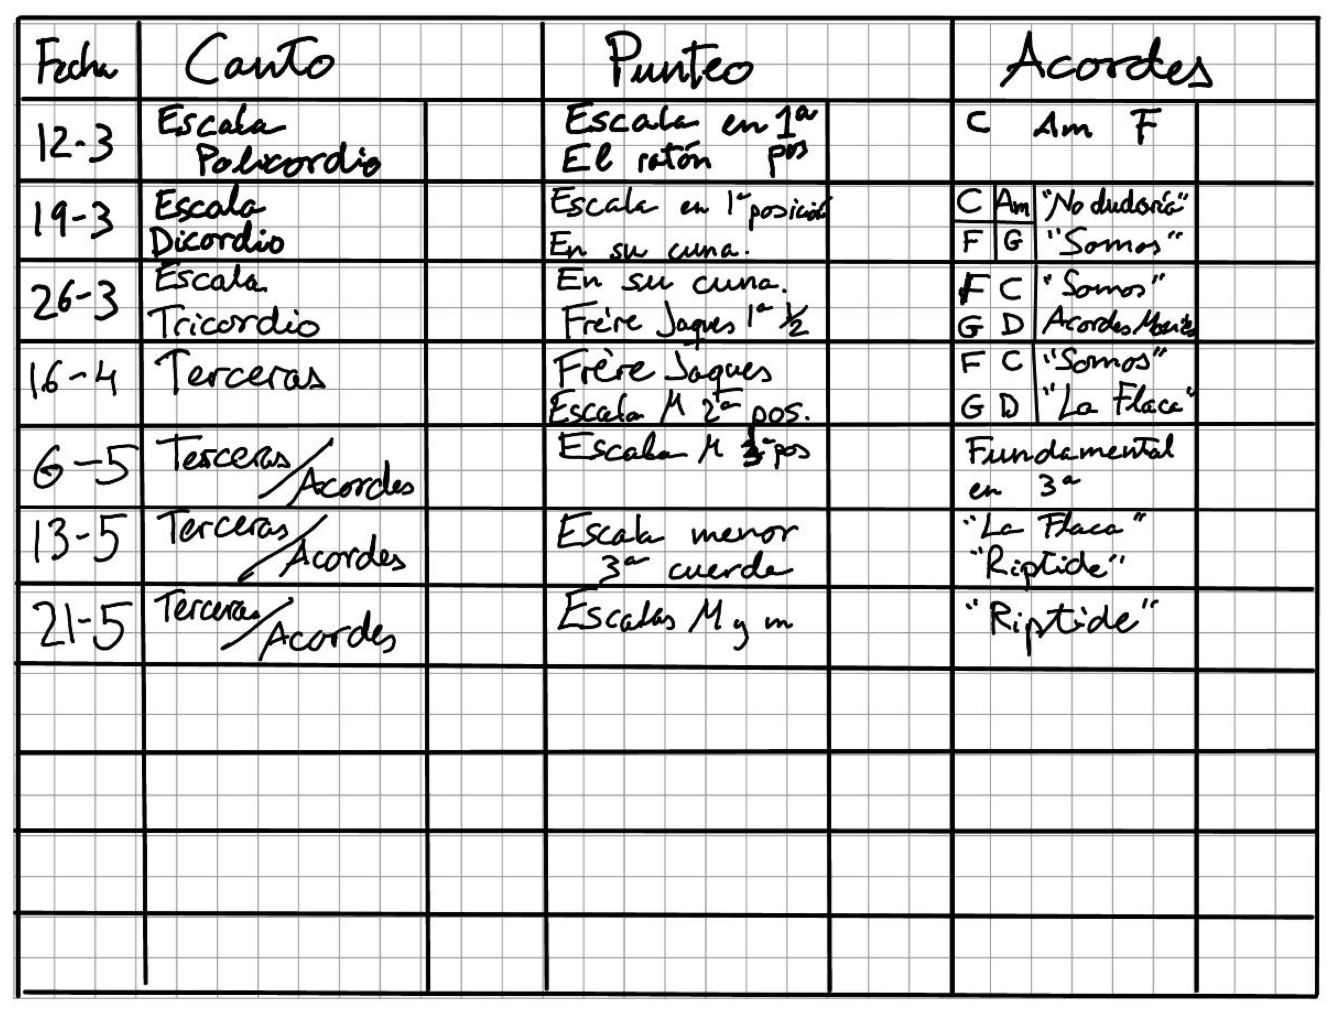 Fecha Canto Punteo Acordes
12-3 Escala Policordio Escala en 1ª pos El ratón C Am F
19-3 Escala Dicordio Escala en 1ª posición En su cuna. C Am "No dudaría" F G "Somos"
26-3 Escala Tricordio En su cuna. Frère Jaques 1ª ½ F C "Somos" G D Acordes
16-4 Terceras Frère Jaques Escala M 2ª pos. F C "Somos" G D "La Flaca"
6-5 Terceras/Acordes Escala M pos Fundamental en 3ª
13-5 Terceras/Acordes Escala menor 3ª cuerda "La Flaca" "Riptide"
21-5 Terceras/Acordes Escalas M y m "Riptide"